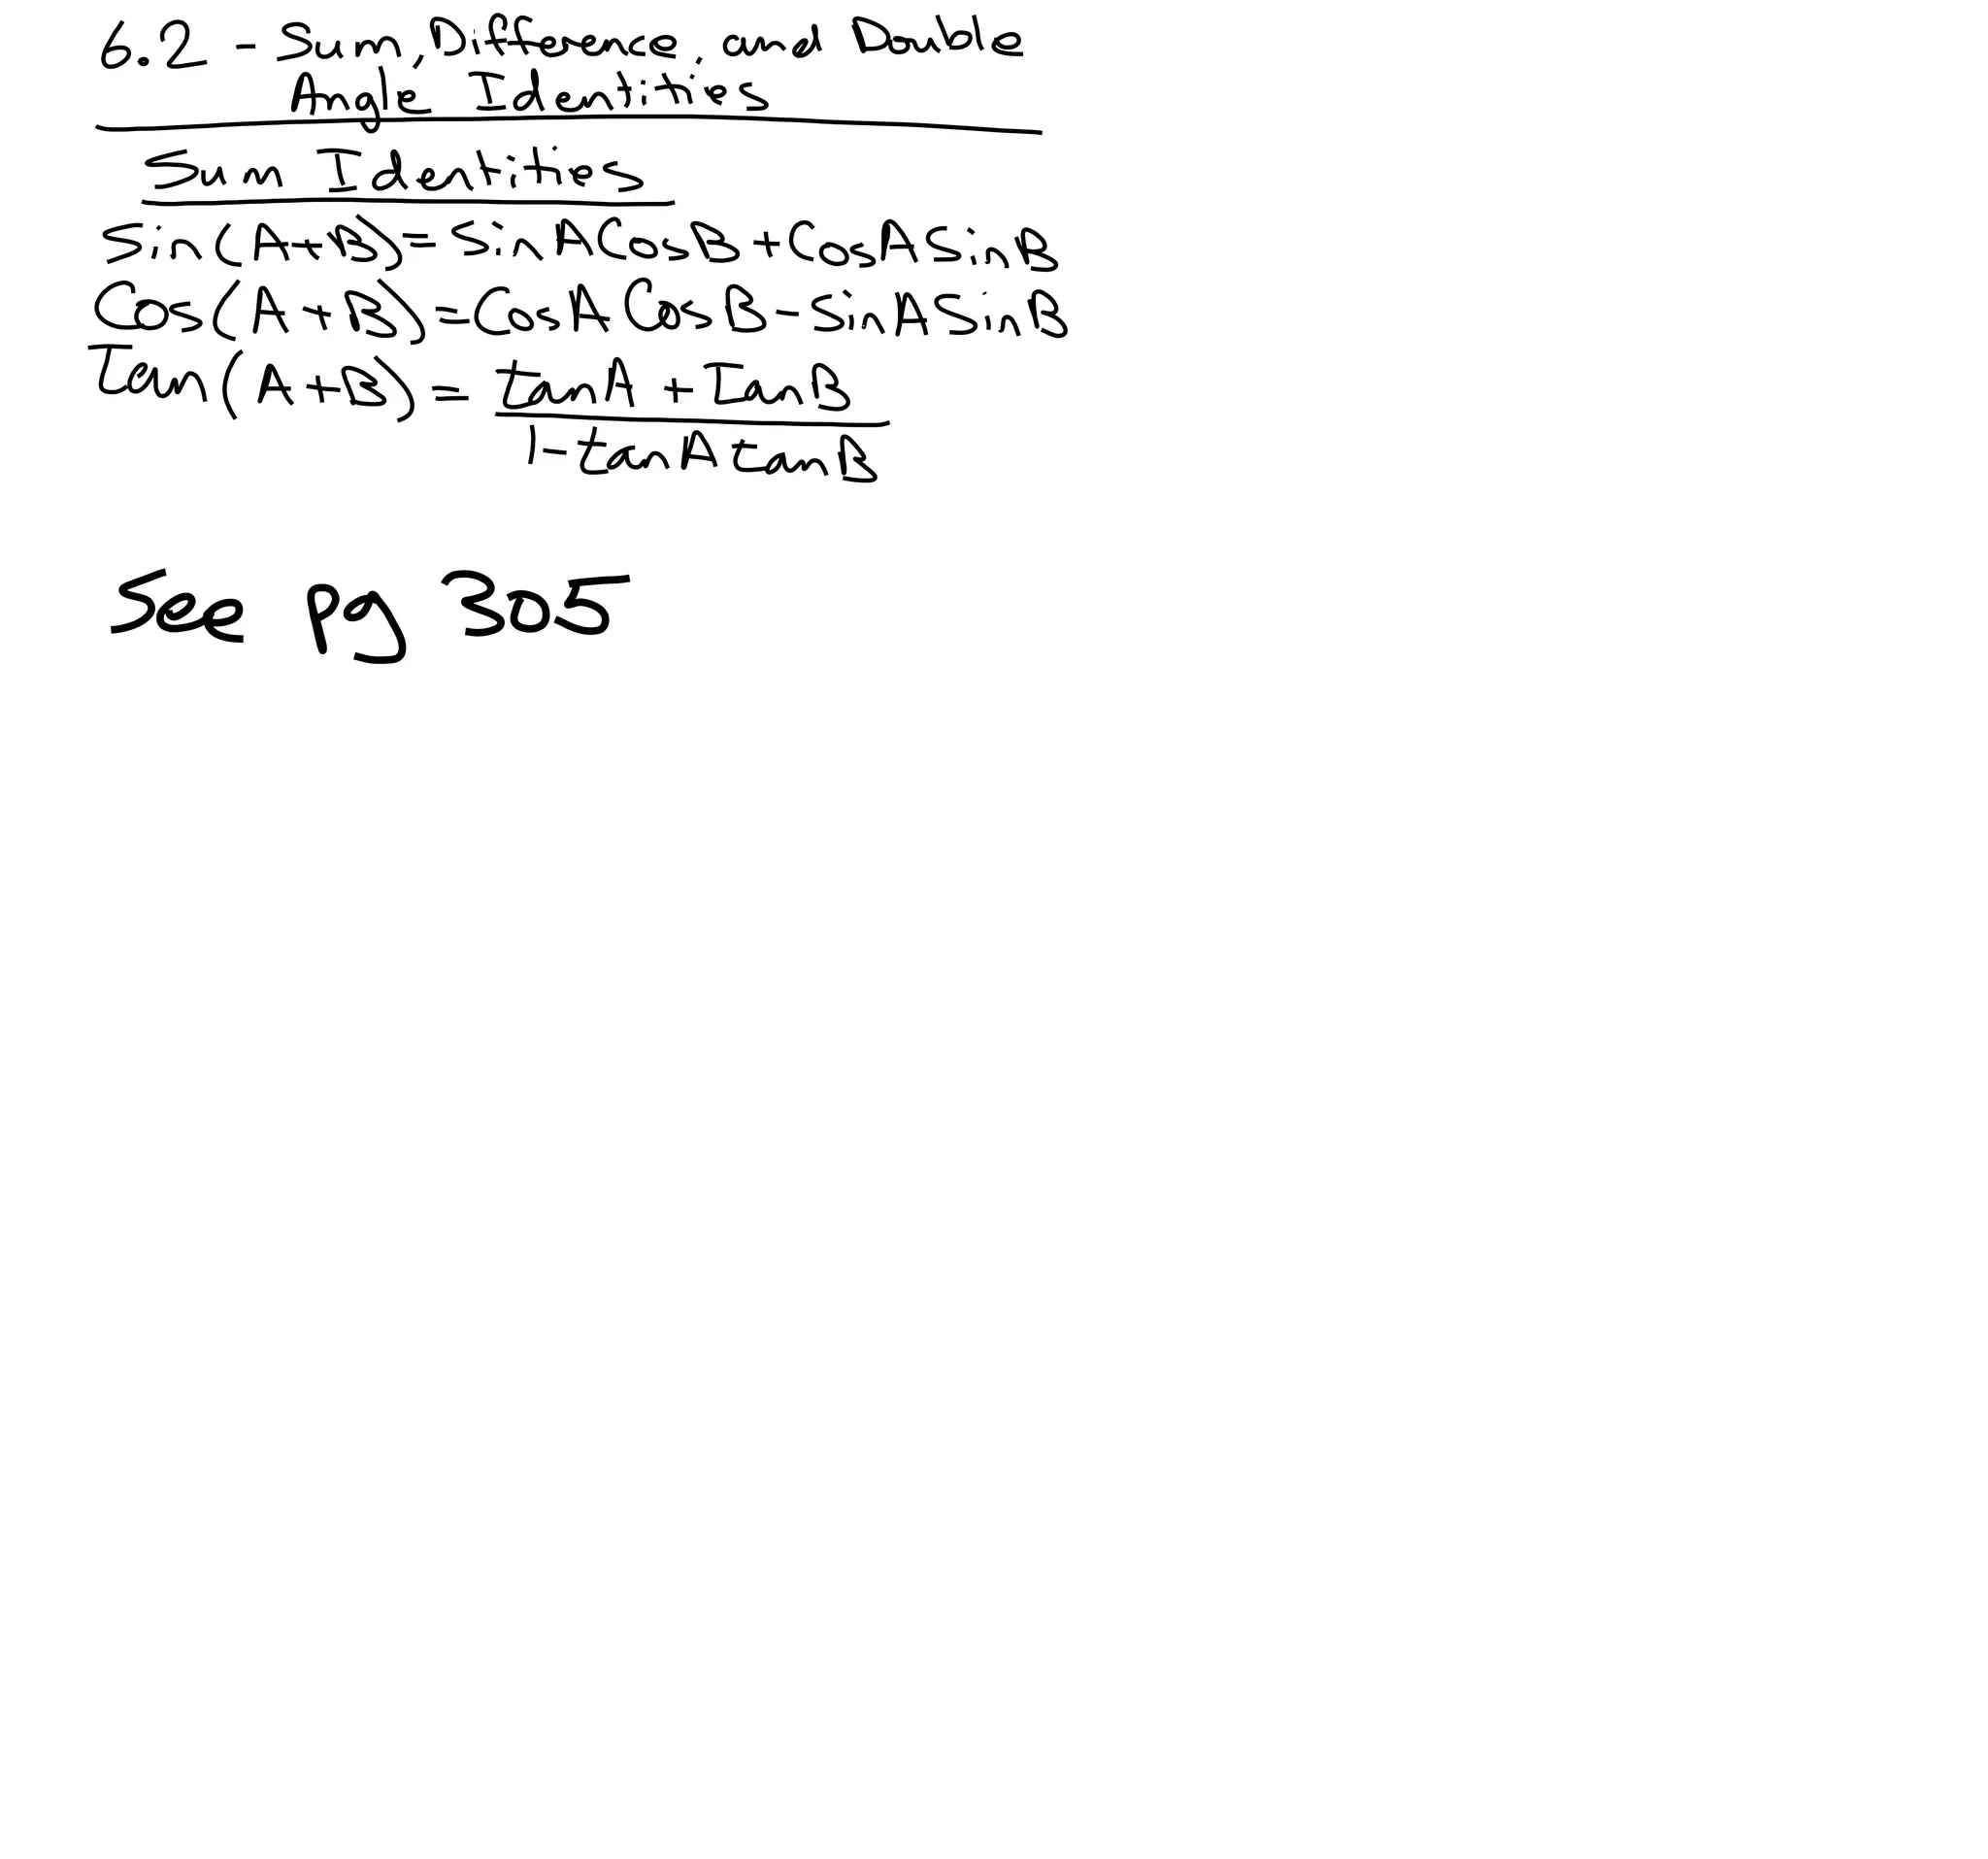 6.2 - Sum, Difference, and Double
Angle Identities
Sum Identities
Sin(A+B)=SinACosB+CosASinB
Cos(A+B)=CosACosB-sinASinB
Tan(A+B)=tanA+TanB
1-tanAtanB
See pg 305